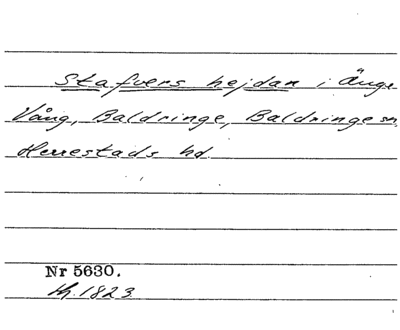 Stafvers hejdan i Änge
Vång, Baldringe, Baldringe sn
Herrestads hd.
Nr 5630.
1823.